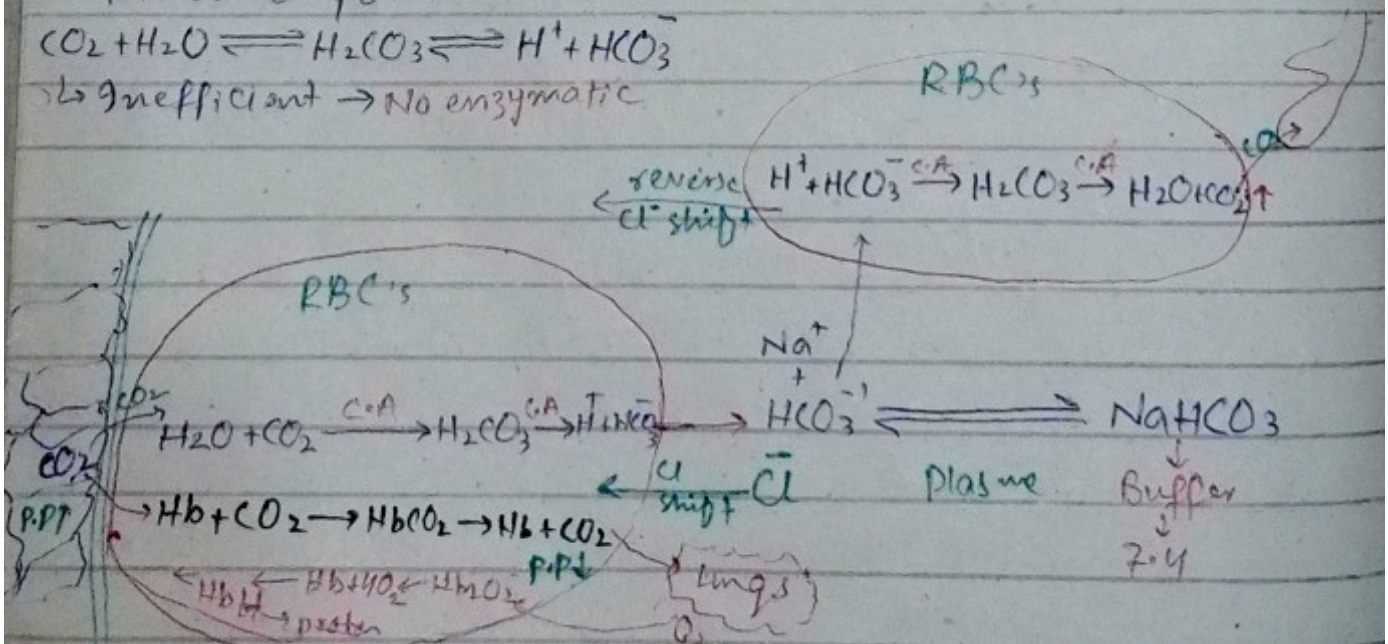 CO2 + H2O ⇌ H2CO3 ⇌ H⁺ + HCO3⁻
↳ Inefficient → No enzymatic
RBC's
CO2
H⁺ + HCO3⁻ C.A→ H2CO3 C.A→ H2O + CO2 ↑
reverse
Cl⁻ shift
RBC's
Na⁺
+
CO2
H2O + CO2 C.A→ H2CO3 C.A→ H⁺ + HCO3⁻ → HCO3⁻¹ ⇌ NaHCO3
CO2
Cl shift ← Cl⁻
Plasma
Buffer
P.P↑
Hb + CO2 → HbCO2 → Hb + CO2
7.4
P.P↓
Lungs
← HbH ← Hb + 4O2 ← HbO2
→ proton
O2